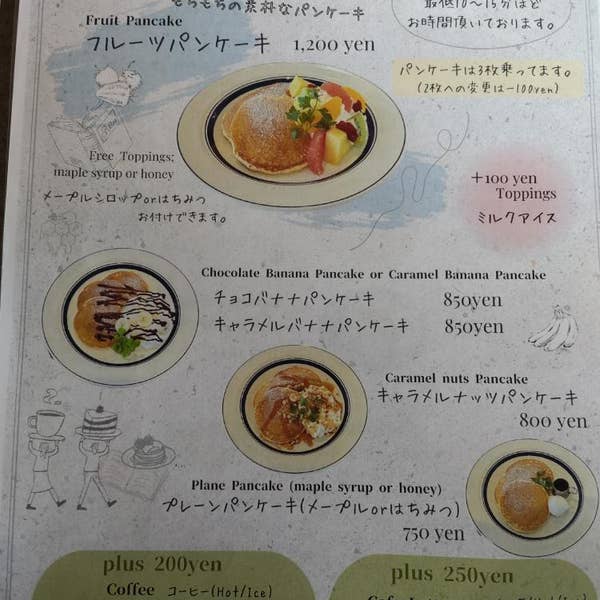 もちもちの素朴なパンケーキ
最低10~15分ほど
お時間頂いております。
Fruit Pancake
フルーツパンケーキ 1,200 yen
パンケーキは3枚乗ってます。
(2枚への変更は-100yen)
Free Toppings:
maple syrup or honey
メープルシロップorはちみつ
お付けできます。
+100 yen
Toppings
ミルクアイス
Chocolate Banana Pancake or Caramel Banana Pancake
チョコバナナパンケーキ 850yen
キャラメルバナナパンケーキ 850yen
Caramel nuts Pancake
キャラメルナッツパンケーキ
800 yen
Plane Pancake (maple syrup or honey)
プレーンパンケーキ(メープルorはちみつ)
750 yen
plus 200yen
Coffee コーヒー(Hot/Ice)
plus 250yen